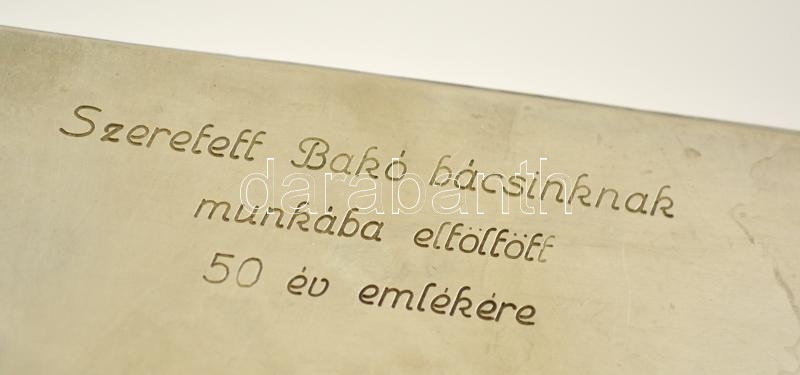 Szeretett Bakó bácsinknak
darabanth
munkába eltöltött
50 év emlékére